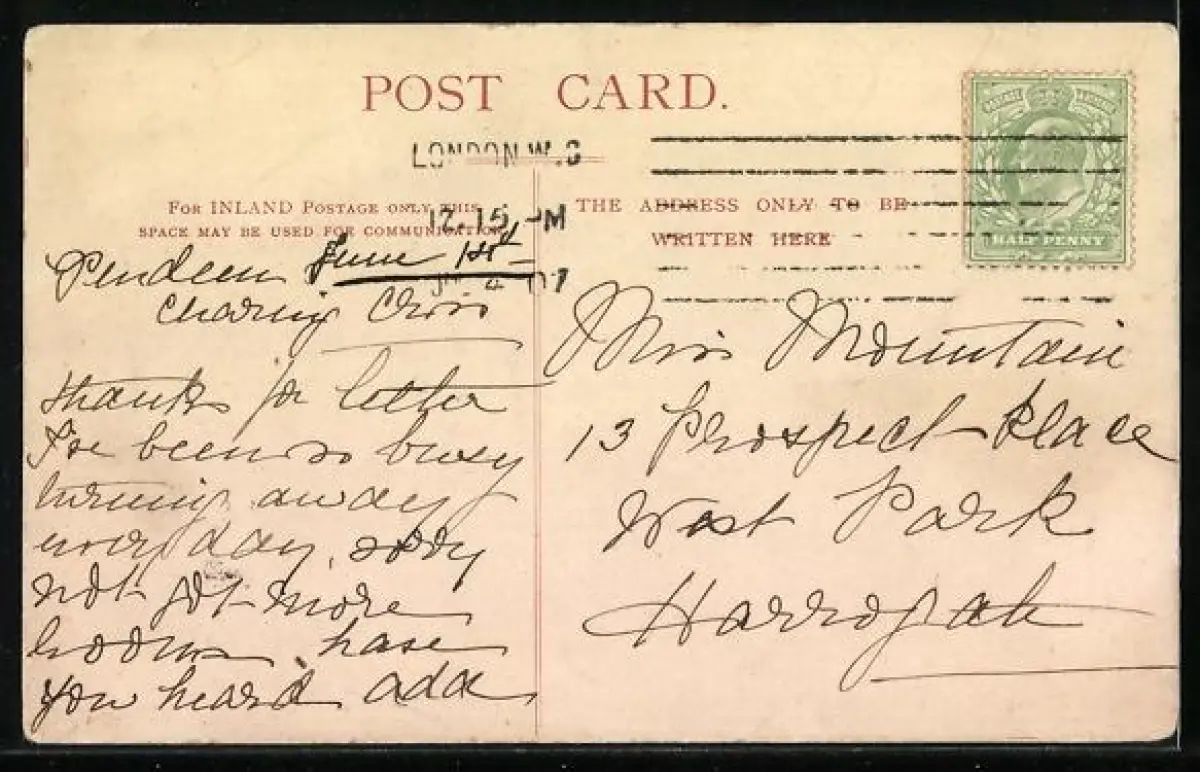 POST CARD.
LONDON.W.C
12.15 PM
07
FOR INLAND POSTAGE ONLY THIS
SPACE MAY BE USED FOR COMMUNICATION
THE ADDRESS ONLY TO BE
WRITTEN HERE
HALF PENNY
Pendeen June 1st
Charing Cross
thanks for letter
I've been so busy
turning away
every day, sorry
not got more
rooms, have
you heard ada
Miss Mountain
13 Prospect Place
West Park
Harrogate